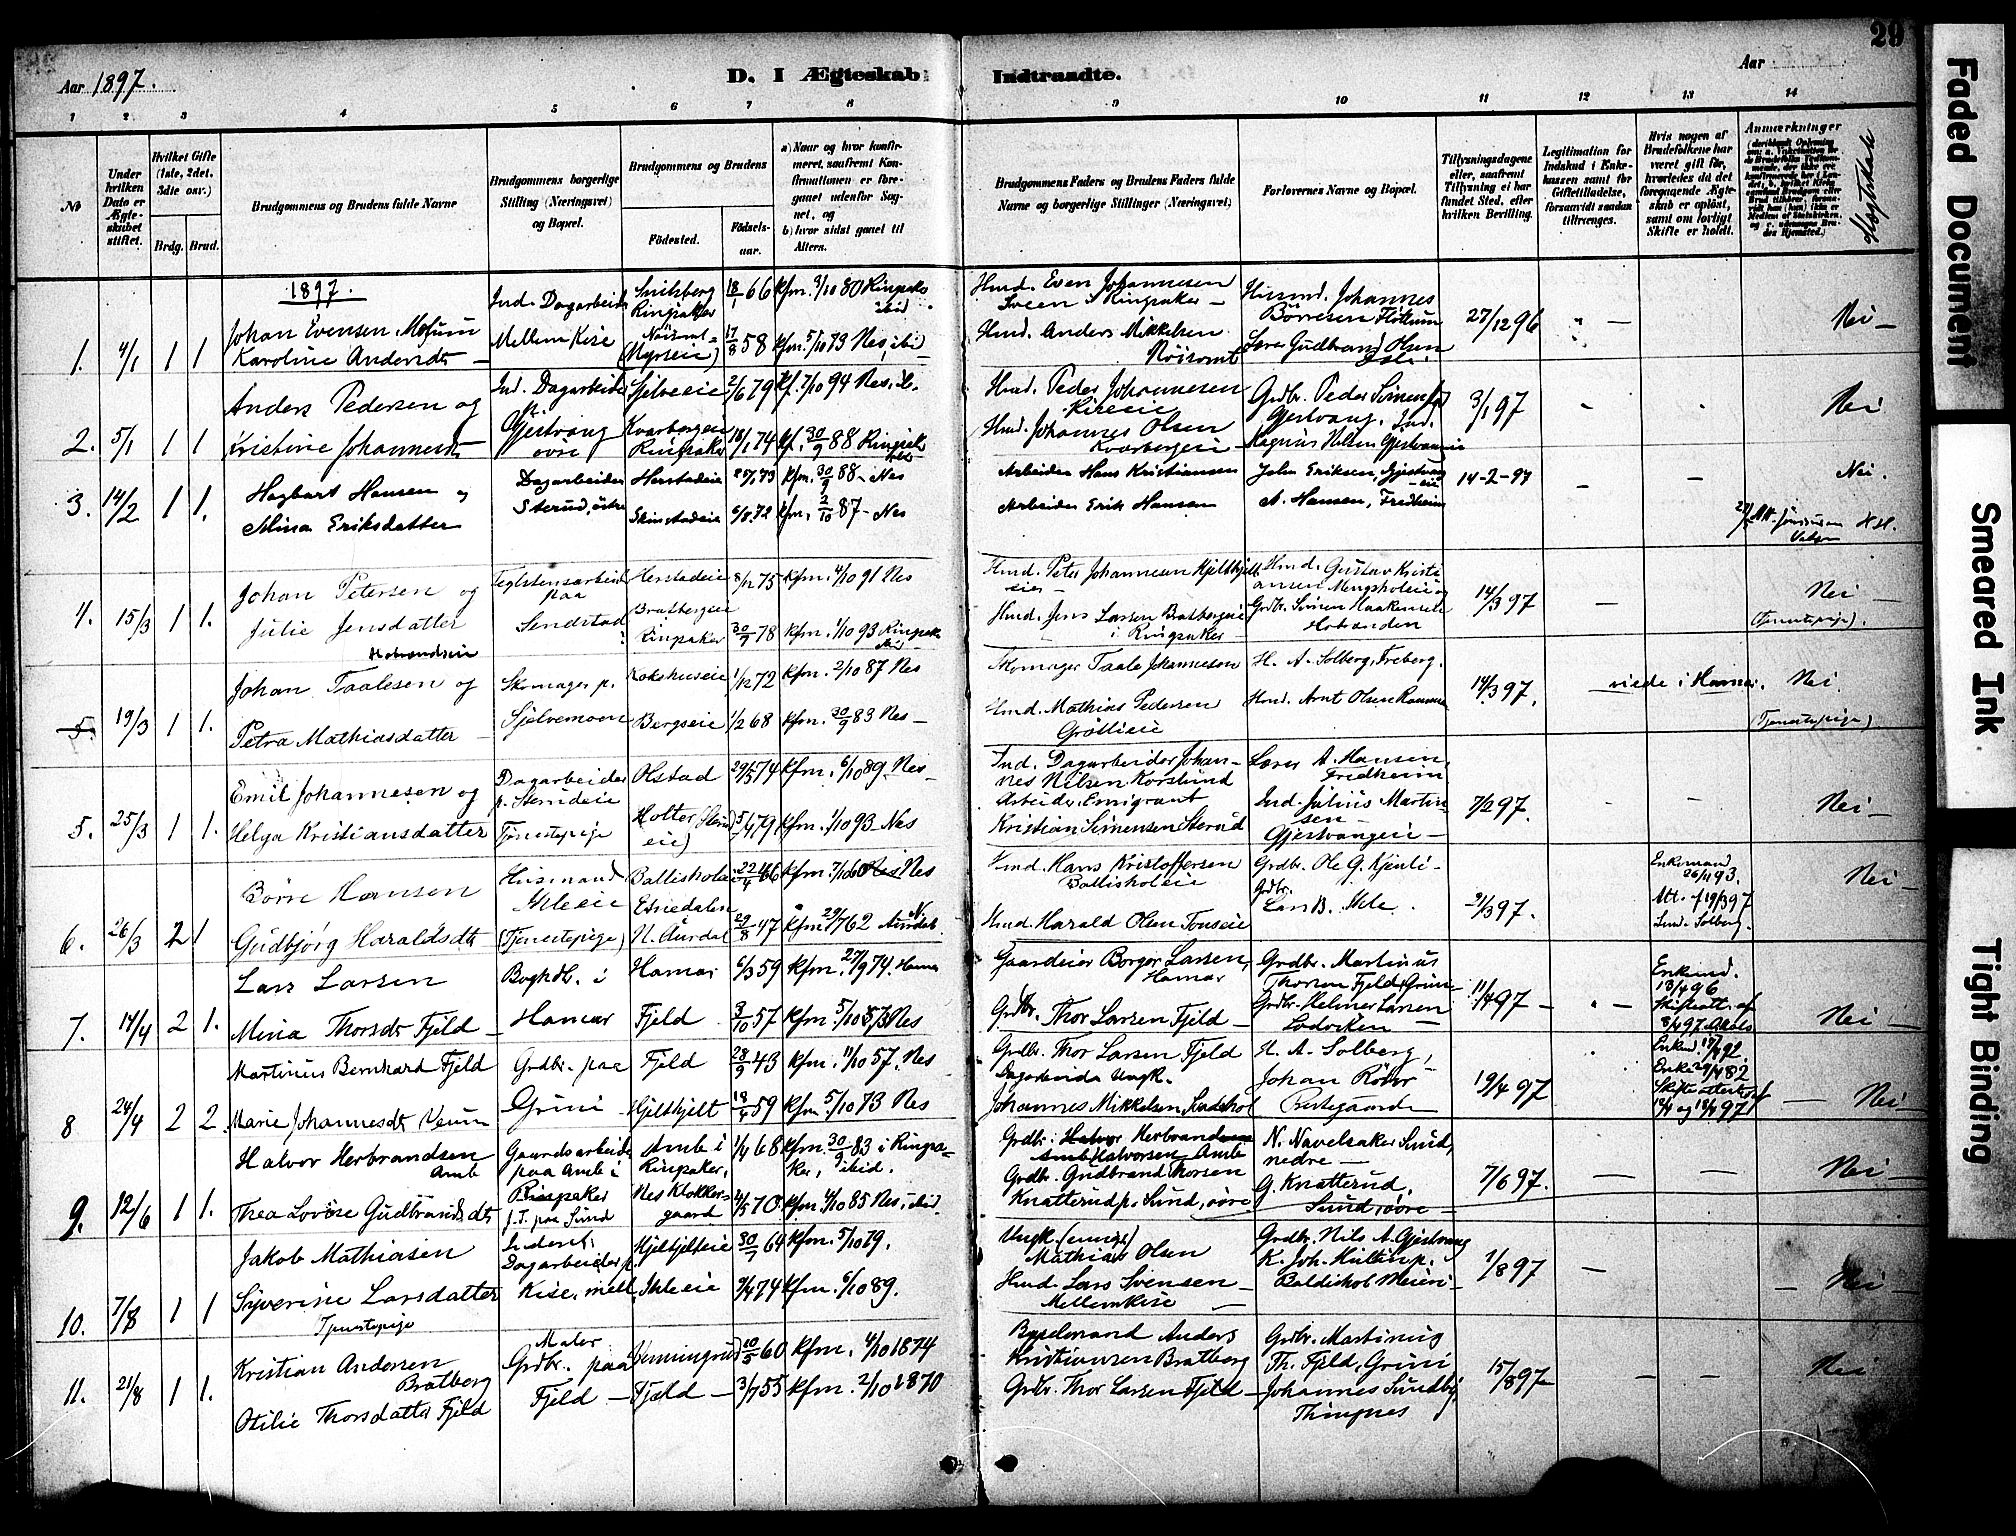 Aar 1897.
D. I Ægteskab
Indtraadte.
Aar
29
1 2 3 4 5 6 7 8 9 10 11 12 13 14
No
Under hvilken Dato er Ægteskabet stiftet.
Hvilket Gifte (1ste, 2det, 3die osv.)
Brdg. Brud.
Brudgommens og Brudens fulde Navne
Brudgommens borgerlige Stilling (Næringsvei) og Bopæl.
Brudgommens og Brudens
Födested.
Födselsaar.
a) Naar og hvor konfirmeret, saafremt Konfirmationen er foregaaet udenfor Sognet, og
b) hvor sidst gaaet til Alters.
Brudgommens Faders og Brudens Faders fulde Navne og borgerlige Stillinger (Næringsvei)
Forlovernes Navne og Bopæl.
Tillysningsdagene eller, saafremt Tillysning ei har fundet Sted, efter hvilken Bevilling.
Legitimation for Indskud i Enkekassen samt for Giftetilladelse, forsaavidt saadan tiltrænges.
Hvis nogen af Brudefolkene har været gift før, hvorledes da det foregaaende Ægteskab er oplöst, samt om lovligt Skifte er holdt.
Anmærkninger
1897.
1. 4/1 1 1
Johan Evensen Moeum
Karoline Andersdt
Ind. Dagarbeider
Mellem Kise
Ringsaker
18/1 66 kfm. 3/10 80 Ringsaker ibid
17/8 58 kfm. 5/10 73 Nes, ibid
Hmd. Even Johannesen
Sveen i Ringsaker
Hmd. Anders Mikkelsen
Husmd. Johannes
Lars Gudbrand Olsen
27/12 96
Nei
2. 5/1 1 1
Anders Pedersen og
Kristine Johannesdt
Ind. Dagarbeider
p. Gjestvang
övre
Sjelveeie
Kvarbergeie
Ringsaker
2/6 79 kf. 7/10 94 Nes, ib.
18/1 74 kf. 30/9 88 Ringsaker
Hmd. Peder Johannesen
Kiseeie
Hmd. Johannes Olsen
Kvarbergeie
Grdbr. Peder Simensen
Gjestvang. Ind.
Magnus Nilsen Gjestvangeie
3/1 97
Nei
3. 14/2 1 1.
Hagbart Hansen og
Mina Eriksdatter
Dagarbeider
Sterud, östre
Herstadeie
Skinstadeie
25/1 73 kfm. 30/9 88 - Nes
6/8 72 kfm. 2/10 87 - Nes
Arbeider Hans Kristiansen
Arbeider Erik Hansen
John Eriksen, Gjestvangeie
A. Hansen, Fredheim
14-2-97
Nei.
4. 15/3 1 1.
Johan Petersen og
Julie Jensdatter
Teglstensarbeider
paa
Sendstad
Herstadeie
Bratbergeie
Ringsaker
8/12 75 kfm. 4/10 91 Nes
30/9 78 kfm. 1/10 93 Ringsaker
Hmd. Peter Johannesen Kjelshjelteie
Hmd. Jens Larsen Bratbergeie
i Ringsaker
Hmd. Gustav Kristiansen Mengsholeie og
Grdbr. Simen Haakensen
Hobranden
14/3 97
Nei
(Tjenestepige).
5. 19/3 1 1.
Hobrandseie
Johan Taalesen og
Petra Mathiasdatter
Skomager p.
Sjelvemoen
Kokshuseie
Bergseie
1/12 72 kfm. 2/10 87 Nes
1/2 68 kfm. 30/9 83 Nes
Skomager Taale Johannesen
Hmd. Mathias Pedersen
Gröttieie
H. A. Solberg, Freberg.
Hmd. Arnt Olsen
14/3 97.
viede i Hamar.
Nei
(Tjenestepige)
5. 25/3 1 1.
Emil Johannesen og
Helga Kristiansdatter
Dagarbeider
p. Sterudeie
Tjenestepige
Olstad
Holter
29/5 74 kfm. 6/10 89 Nes
5/4 79 kfm. 1/10 93 Nes
Ind. Dagarbeider Johannes Nilsen Korslund
Arbeider, Emigrant
Kristian Simensen Sterud
Lars A. Hansen,
Fredheim
Ind. Julius Martinsen
Gjestvangeie
7/2 97.
Nei
6. 26/3 2 1
Börre Hansen
Gudbjörg Haraldsdt
Husmand
Jileeie
(Tjenestepige)
Ballisholeie
Etnedalen
N. Aurdal
22/4 46 kfm. 7/10 60 Nes
29/8 47 kfm. 29/7 62 N. Aurdal.
Hmd. Hans Kristoffersen
Ballisholeie
Hmd. Harald Olsen Tonseie
Grdbr. Ole G. Kjenli
Grdbr.
Lars B. Jile.
21/3 97.
Enkemand
26/11 93.
Att. af 19/3 97
Lmd. Solberg.
Nei
7. 14/4 2 1.
Lars Larsen
Mina Thorsdt Fjeld
Boghdl. i
Hamar
Hamar
Fjeld
6/3 59 kfm. 27/9 74. Hamar
3/10 57 kfm. 5/10 73 Nes
Gaardeier Borger Larsen,
Hamar
Grdbr. Thor Larsen Fjeld
Grdbr. Martinus
Thorsen Fjeld, Grini
Grdbr. Helmer Larsen
Lodviken
11/4 97
Enkemd.
13/4 96
Skifteatt. af
8/4 97.
Nei
8 24/4 2 2.
Martinus Bernhard Fjeld
Marie Johannesdt Veum
Grdbr. paa
Grini
Fjeld
Hjelshjelt
28/9 43 kfm. 11/10 57. Nes
18/4 59 kfm. 5/10 73 Nes
Grdbr. Thor Larsen Fjeld
Dagarbeider Ungk.
Johannes Mikkelsen Sundshol
H. A. Solberg,
Johan Röhr
Prestegaarden
19/4 97
Enkemd. 17/4 92.
Enke 29/4 82
Skifteattest af
12/4 og 14/4 97
Nei
9. 12/6 1 1.
Halvor Herbrandsen
Amb
Thea Lovise Gudbrandsdt
Gaardsarbeider
paa Amb i
Ringsaker
f.T. paa Sund
Amb i
Ringsaker,
Nes Klokkergaard
1/4 68 kfm. 30/9 83 i Ringsaker, ibid.
4/5 70 kfm. 4/10 85 Nes, ibid.
Grdbr. Halvor Herbrandsen
Amb Halvorsen Amb
Grdbr. Gudbrand Thorsen
Knatterud p. Sund, övre
N. Navelsaker Sund,
nedre
G. Knatterud,
Sund, övre
7/6 97.
Nei
10. 7/8 1 1
Jakob Mathiasen
Syverine Larsdatter
Tjenestepige
Inderst,
Dagarbeider p.
Kise, mell.
Hjelshjelteie
Jileeie
30/7 64 kfm. 5/10 79.
9/4 74 kfm. 6/10 89.
Ungk. (emigr.)
Mathias Olsen
Hmd. Lars Svensen
Mellemkise
Grdbr. Nils A. Gjestvang
K. Joh. Hultin p.
Baldishol Meieri
1/8 97
Nei
11. 21/8 1 1.
Kristian Andersen
Bratberg
Otilie Thorsdatter Fjeld
Maler
Grdbr. paa
Fjeld
Venningrud
Fjeld
10/5 60 kfm. 4/10 1874
3/7 55 kfm. 2/10 1870
Bygselmand Anders
Kristiansen Bratberg
Grdbr. Thor Larsen Fjeld
Grdbr. Martinus
Th. Fjeld, Grini
Johannes Sundby,
Thingnes
15/8 97
Nei
Faded Document
Smeared Ink
Tight Binding